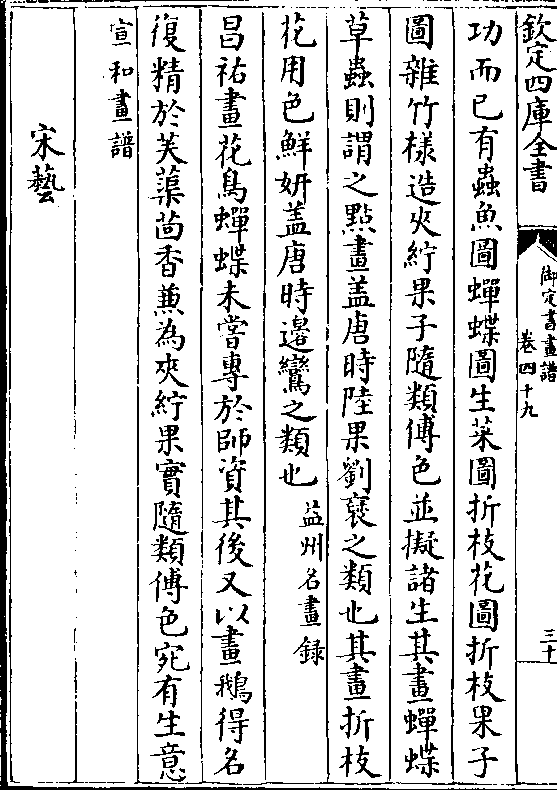 欽定四庫全書
御定書畫譜
卷四十九
三十
功而已有蟲魚圖蟬蝶圖生菜圖折枝花圖折枝果子
圖雜竹樣造夾紵果子隨類傅色並擬諸生其畫蟬蝶
草蟲則謂之點畫盖唐時陸果劉裦之類也其畫折枝
花用色鮮妍盖唐時邉鸞之類也益州名畫録
昌祐畫花鳥蟬蝶未嘗專於師資其後又以畫鵝得名
復精於芙蕖茴香兼為夾紵果實隨類傅色宛有生意
宣和畫譜
宋藝